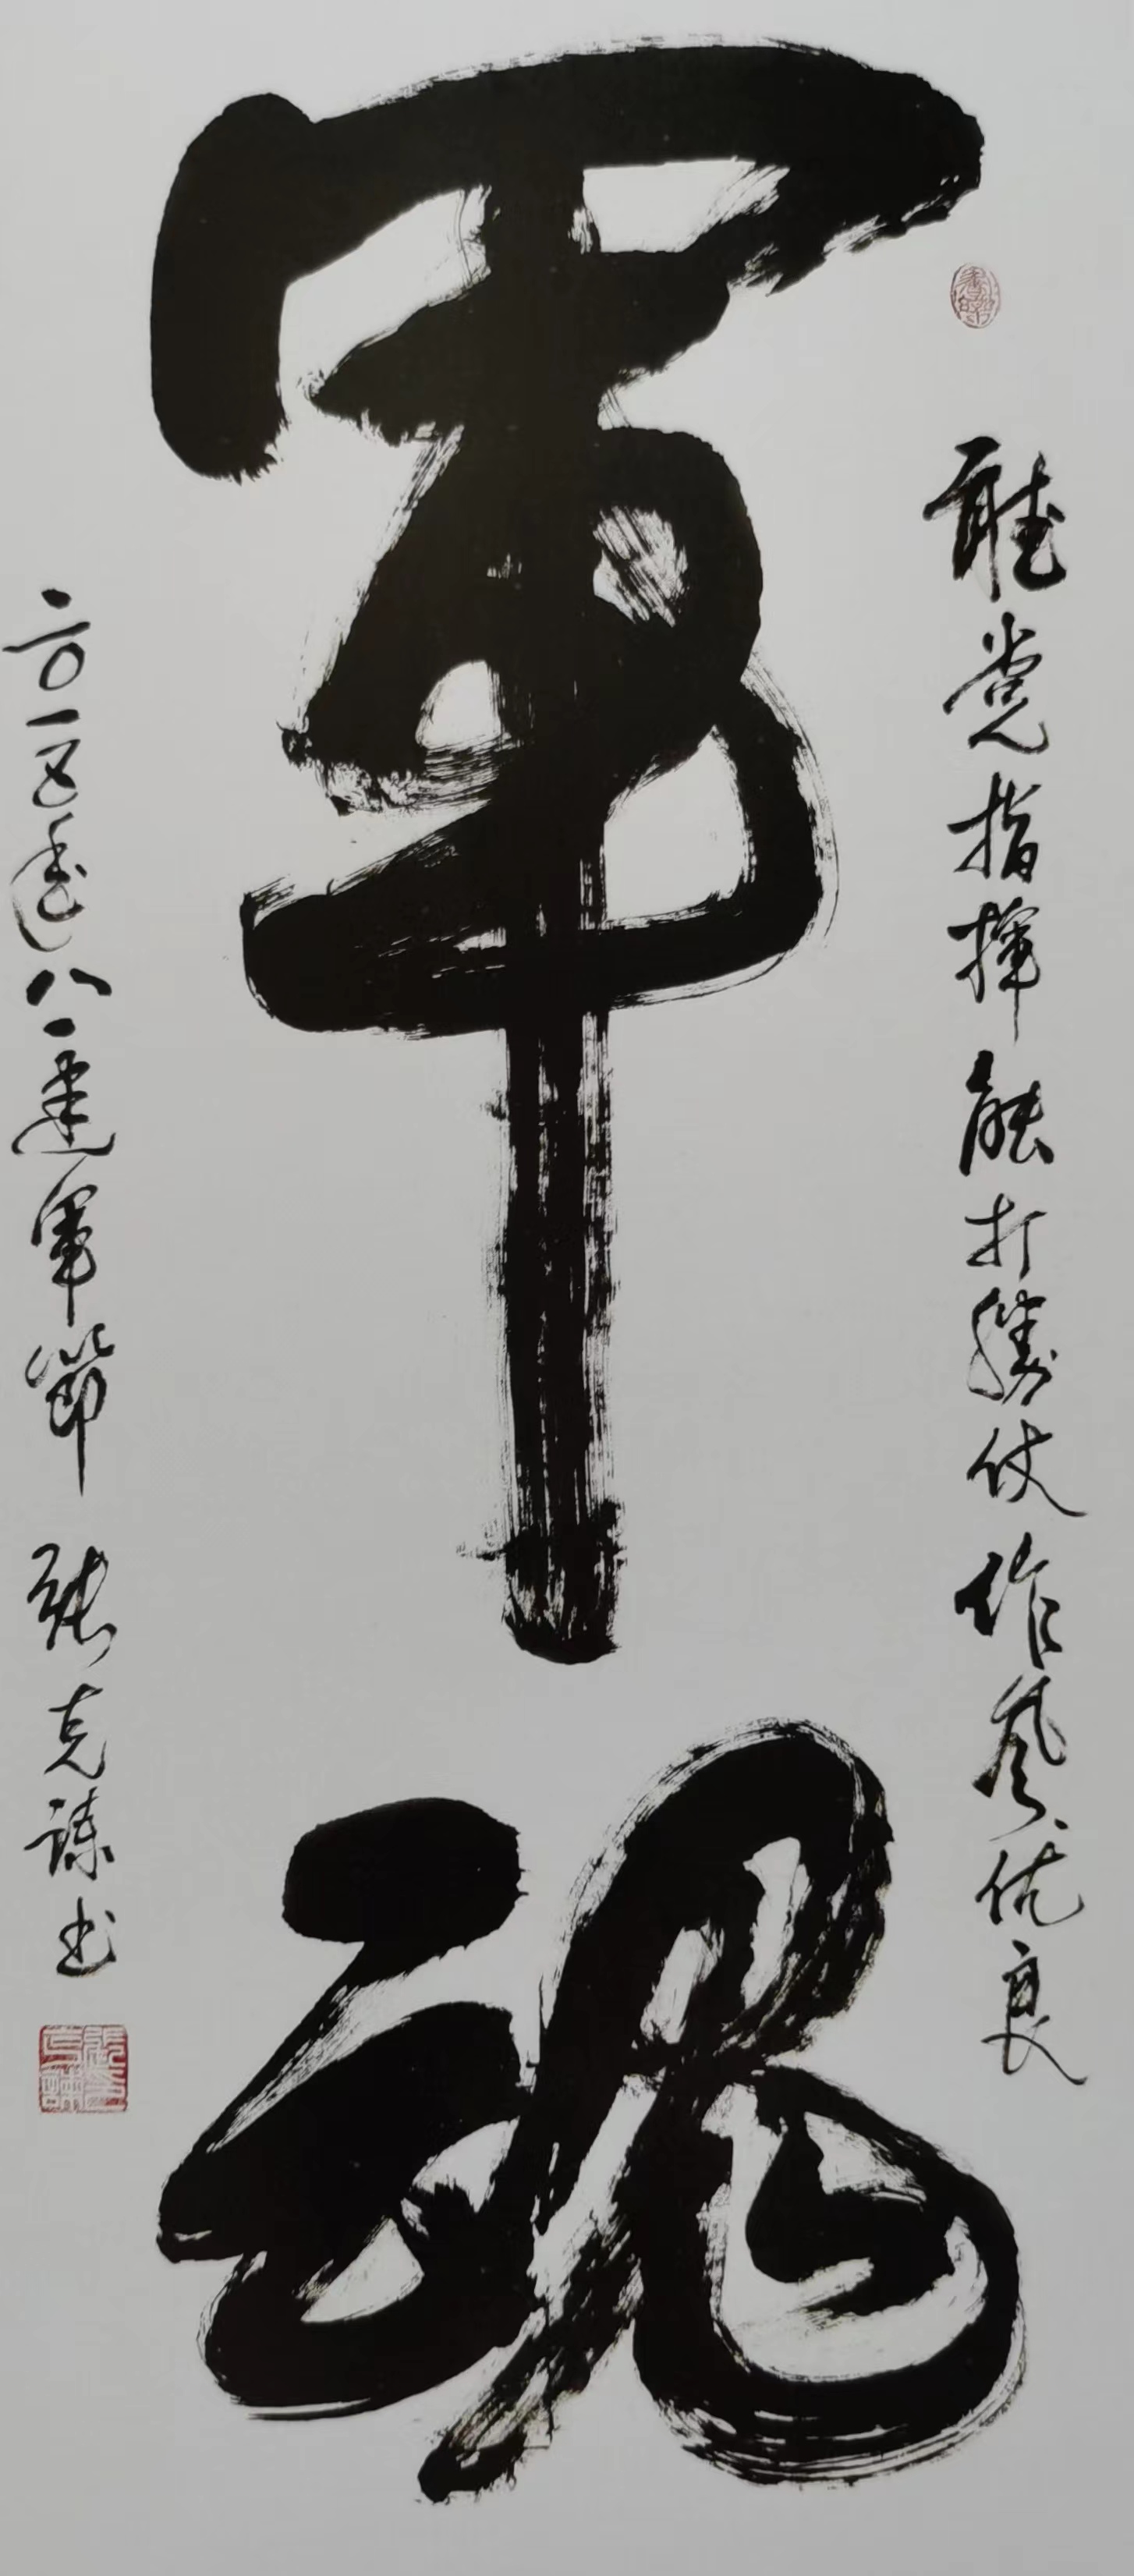 聽党指揮能打勝仗作風优良
軍魂
二〇一五年八一建軍節 張克謙书